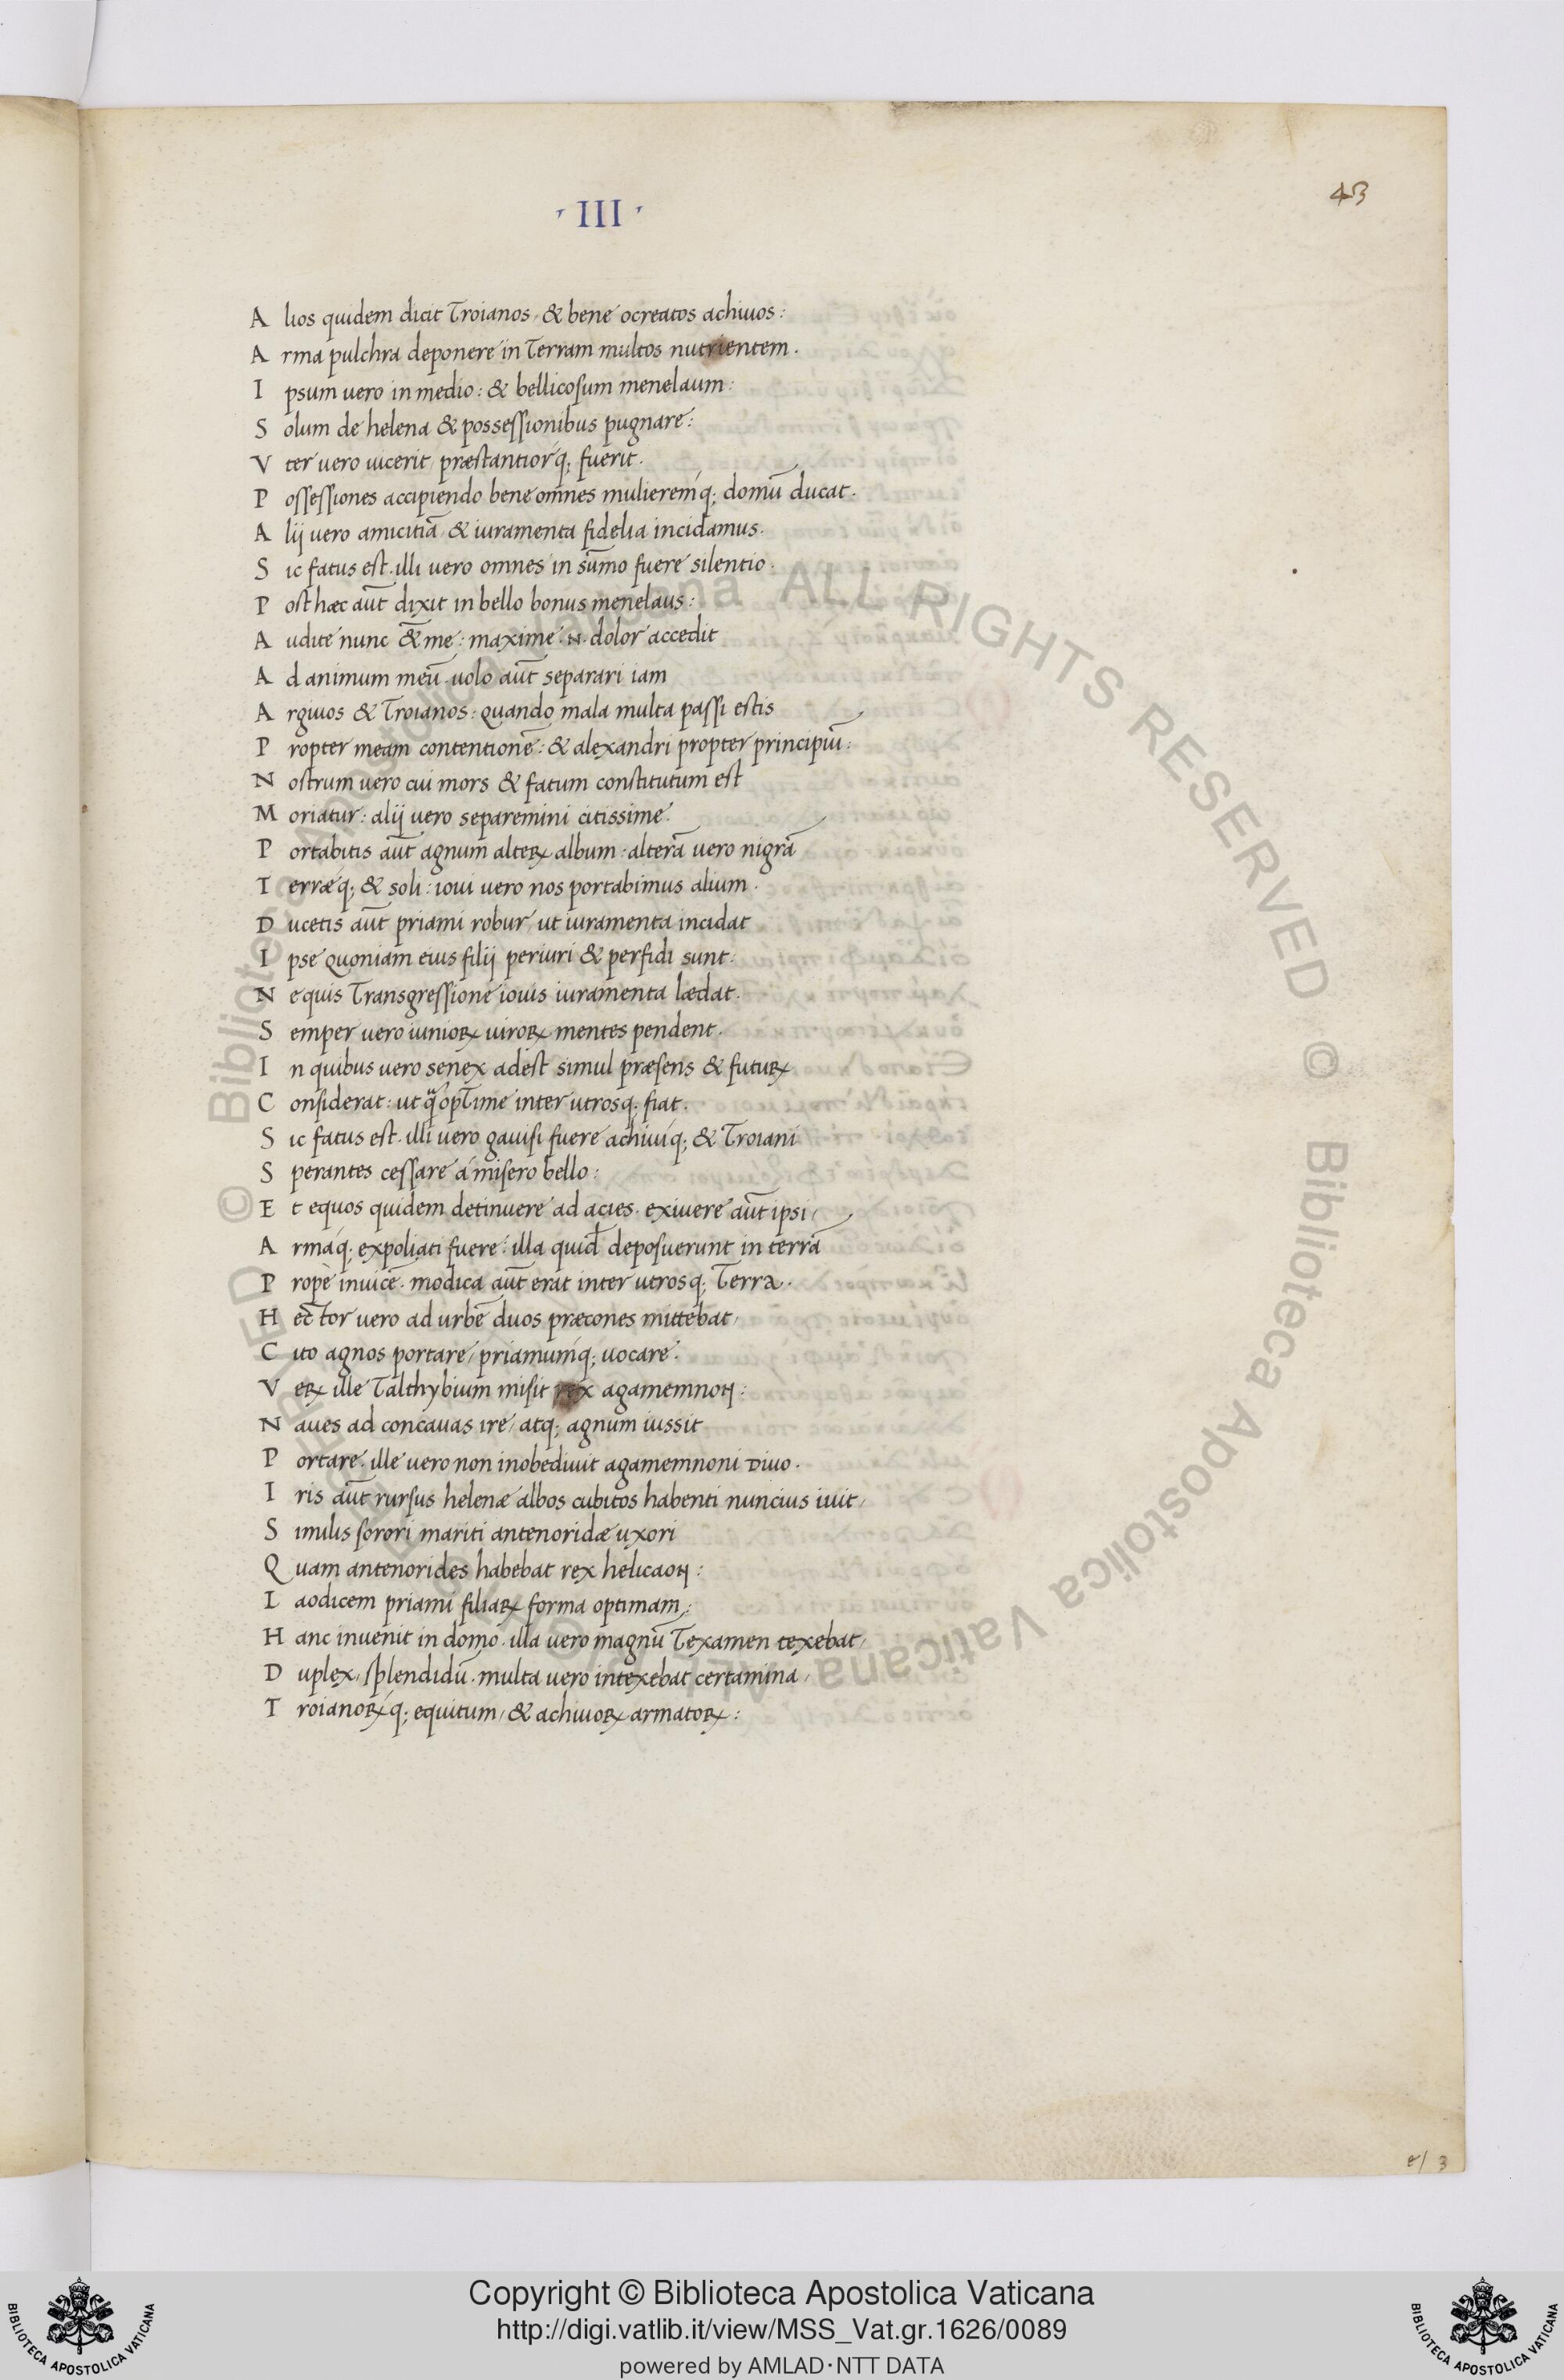 · III ·
43
A lios quidem dicit Troianos, & bene ocreatos achiuos:
A rma pulchra deponere in Terram multos nutrientem.
I psum uero in medio: & bellicosum menelaum:
S olum de helena & possessionibus pugnare:
V ter uero uicerit, præstantiorq; fuerit.
P ossessiones accipiendo bene omnes mulieremq; domū ducat.
A lij uero amicitiā & iuramenta fidelia incidamus.
S ic fatus est. illi uero omnes in sūmo fuere silentio.
P ost hæc aūt dixit in bello bonus menelaus:
A udite nunc & me: maxime .N. dolor accedit
A d animum meū. uolo aūt separari iam
A rgiuos & Troianos: quando mala multa passi estis
P ropter meam contentionē: & alexandri propter principiū:
N ostrum uero cui mors & fatum constitutum est
M oriatur: alij uero separemini citissime.
P ortabitis aūt agnum alteꝝ album: alterā uero nigrā
T erræq; & soli: ioui uero nos portabimus alium.
D ucetis aūt priami robur, ut iuramenta incidat
I pse quoniam eius filij periuri & perfidi sunt:
N equis Transgressione iouis iuramenta lædat.
S emper uero iunioꝝ uiroꝝ mentes pendent.
I n quibus uero senex adest simul præsens & futuꝝ
C onsiderat: ut q̃ opTime inter utrosq; fiat.
S ic fatus est. illi uero gauisi fuere achiuiq; & Troiani
S perantes cessare á misero bello:
E t equos quidem detinuere ad acies. exiuere aūt ipsi,
A rmaq; expoliati fuere: illa quid̄ deposuerunt in terrā
P rope inuicē. modica aūt erat inter utrosq; Terra.
H ecTor uero ad urbē duos præcones mittebat,
C ito agnos portare, priamumq; uocare.
V eꝝ ille Talthybium misit rex agamemnon:
N aues ad concauas ire, atq; agnum iussit
P ortare. ille uero non inobediuit agamemnoni Diuo.
I ris aūt rursus helenæ albos cubitos habenti nuncius iuit,
S imilis sorori mariti antenoridæ uxori
Q uam antenorides habebat rex helicaon:
L aodicem priami filiaꝝ forma optimam:
H anc inuenit in domo. illa uero magnū Texamen texebat,
D uplex, splendidū. multa uero intexebat certamina,
T roianoꝝq; equitum, & achiuoꝝ armatoꝝ:
e/ 3
© Biblioteca Apostolica Vaticana ALL RIGHTS RESERVED © Biblioteca Apostolica Vaticana ALL RIGHTS RESERVED
Copyright © Biblioteca Apostolica Vaticana
http://digi.vatlib.it/view/MSS_Vat.gr.1626/0089
powered by AMLAD·NTT DATA
BIBLIOTECA APOSTOLICA VATICANA
BIBLIOTECA APOSTOLICA VATICANA